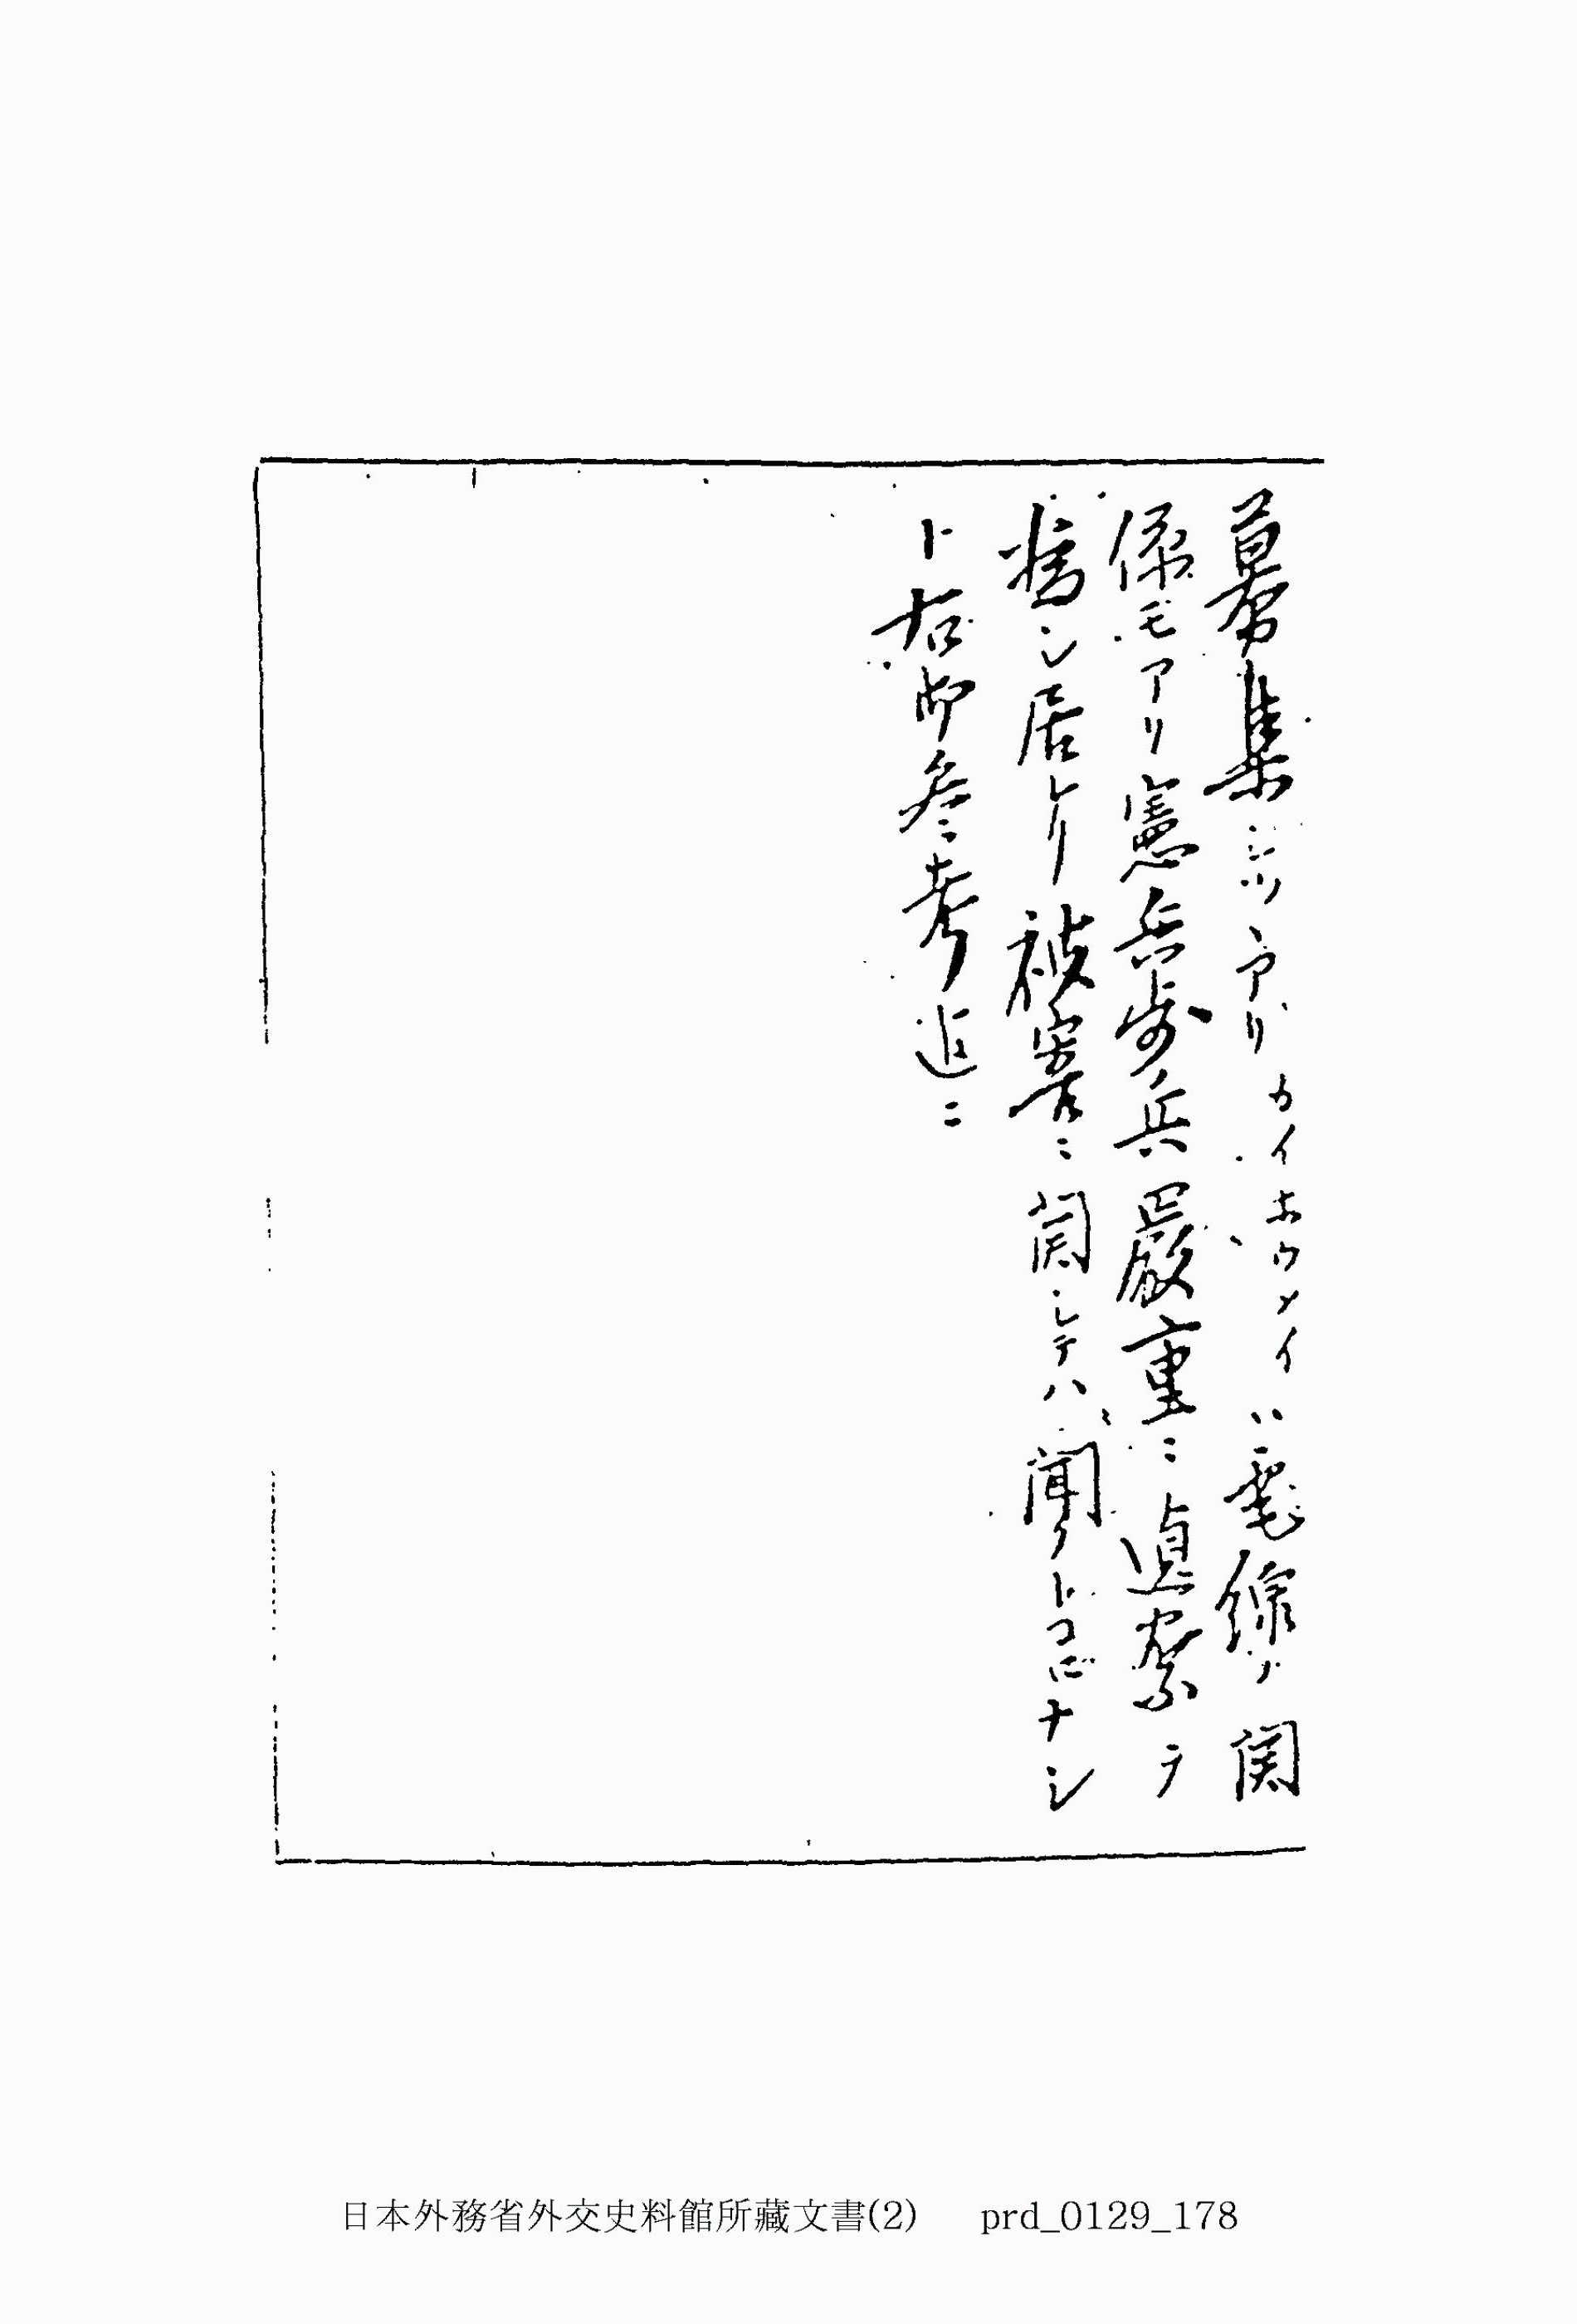 募集シツヽアリカイホウメイハ電線ノ関
係モアリ憲兵歩兵嚴重ニ偵察ヲ
シ居レリ被害ニ関シテハ聞クトコロナシ
ト右御参考迄ニ
日本外務省外交史料館所藏文書(2) prd_0129_178